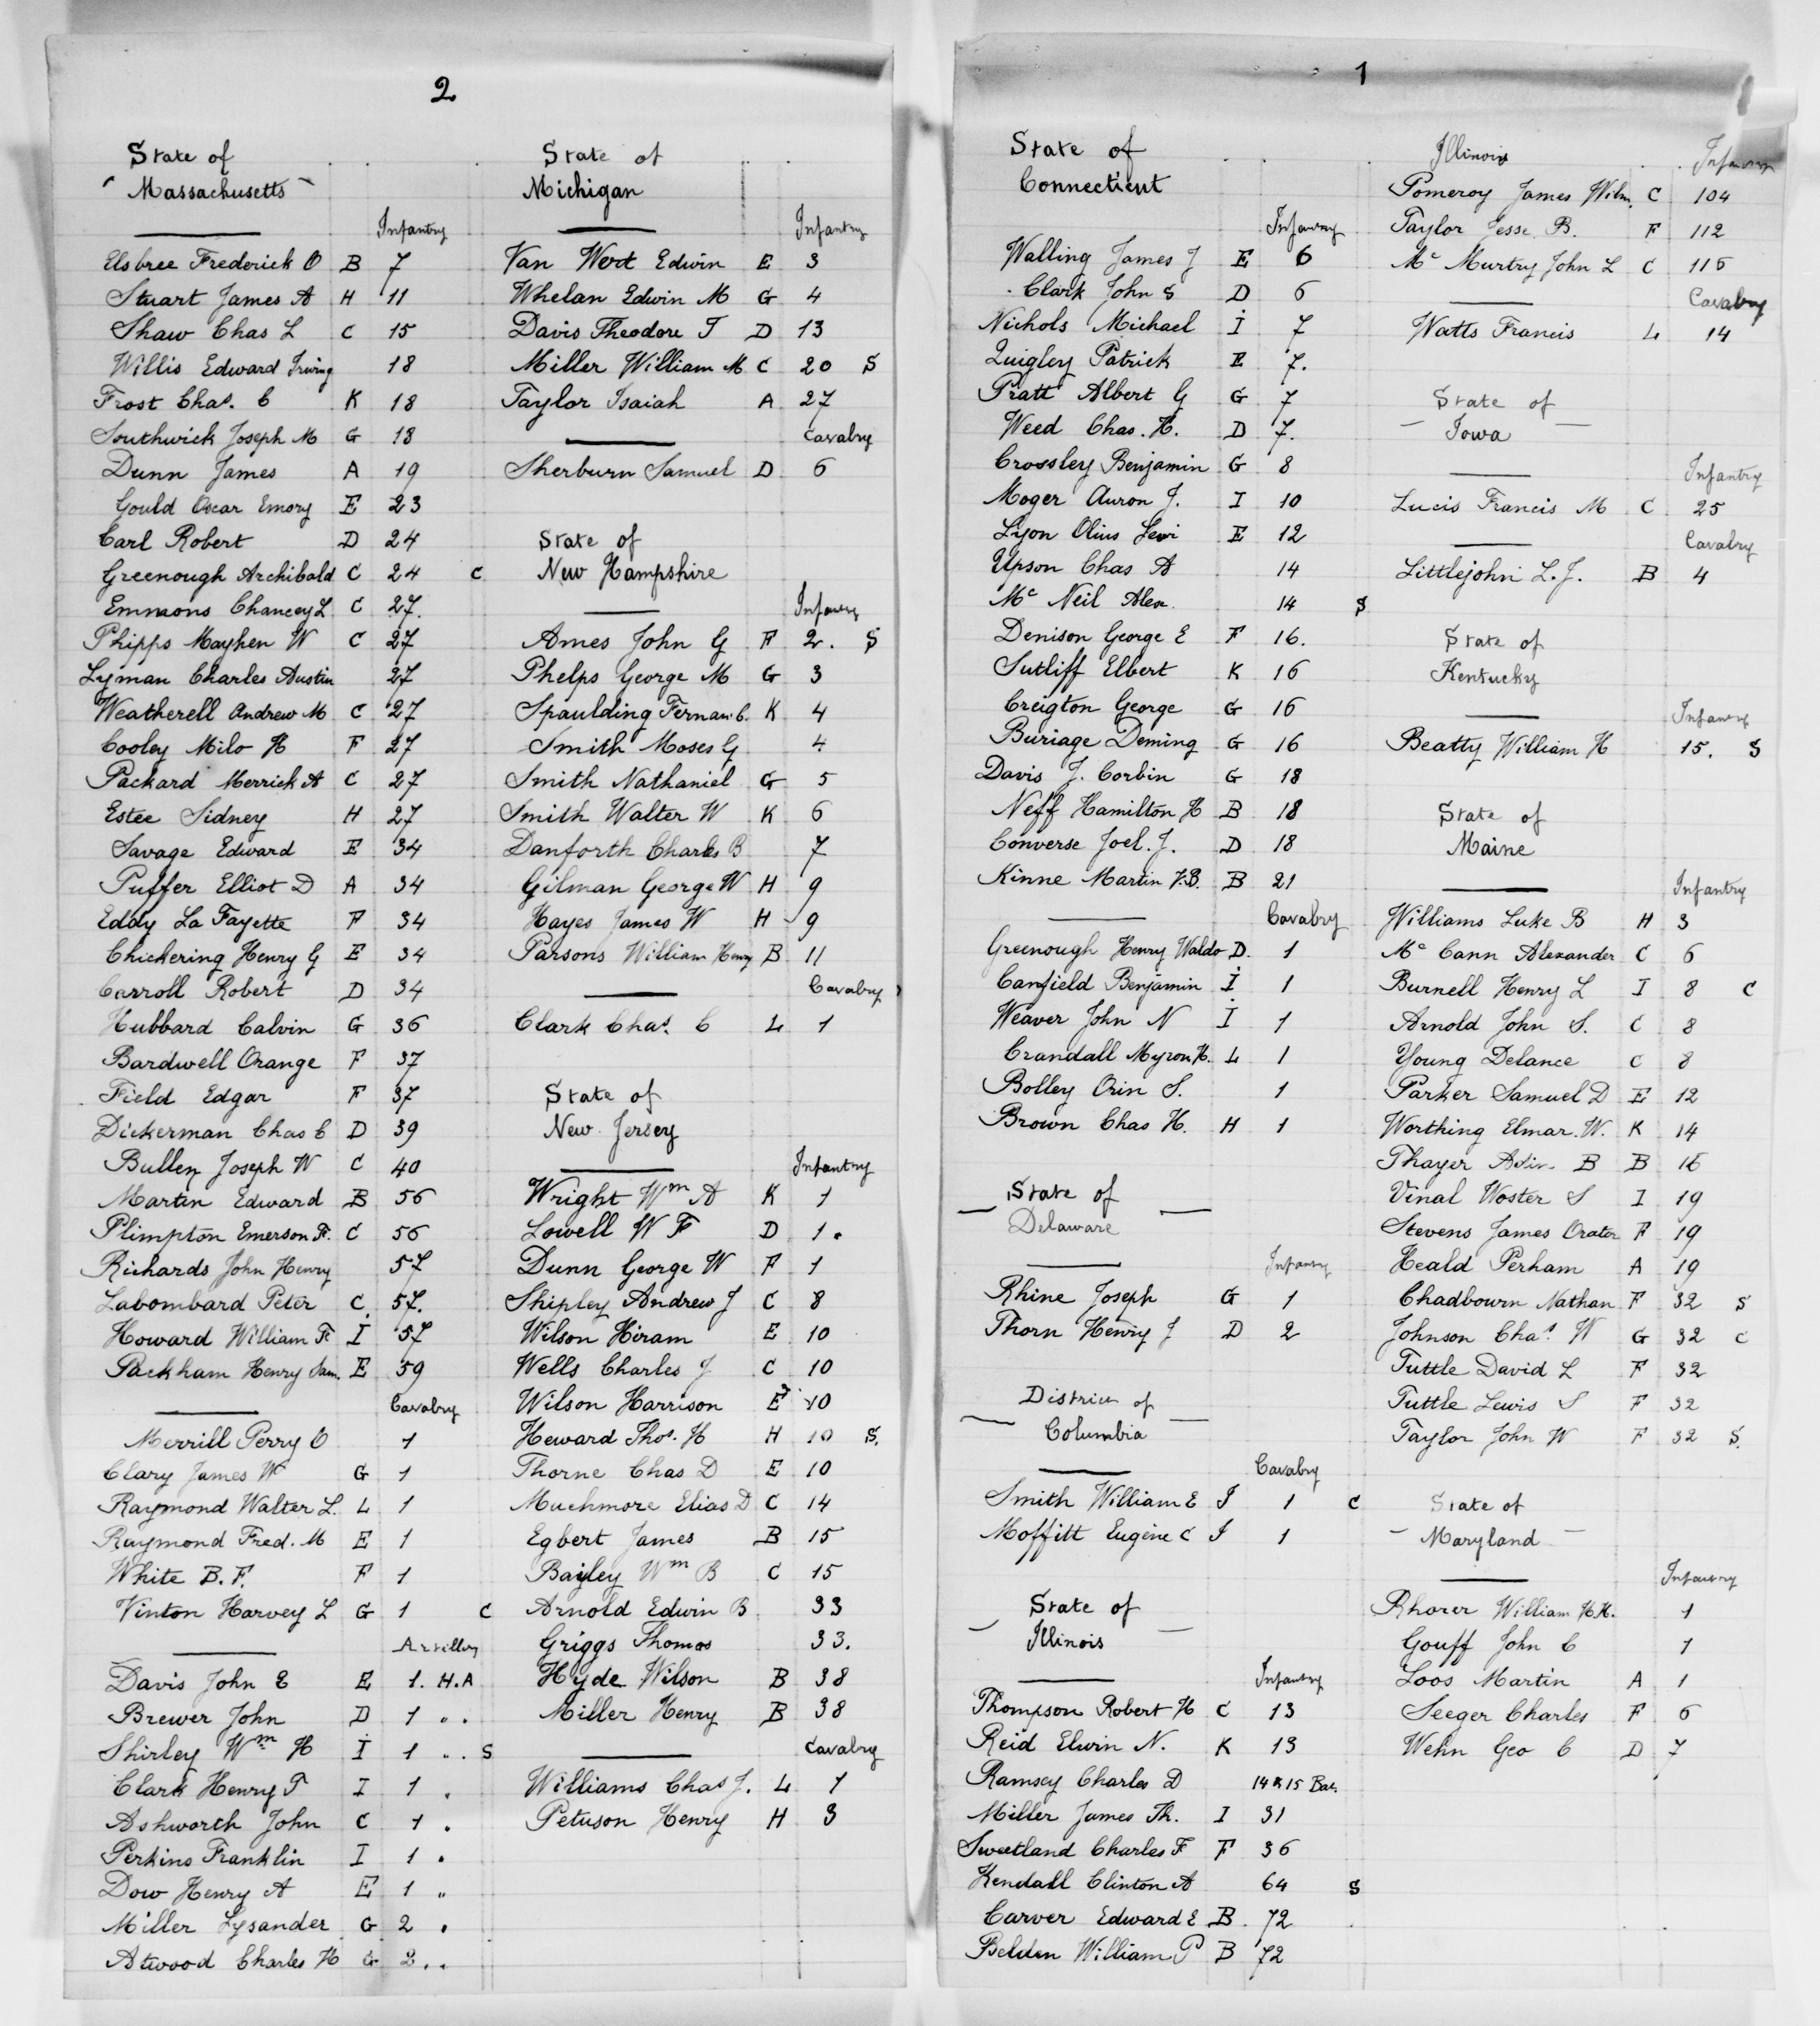 2
State of
Massachusetts
Infantry
Elsbree Frederick O B 7
Stuart James A H 11
Shaw Chas L C 15
Willis Edward Irving 18
Frost Chas. C K 18
Southwick Joseph M G 18
Dunn James A 19
Gould Oscar Emory E 23
Carl Robert D 24
Greenough Archibald C 24 C
Emmons Chancey L C 27.
Phipps Mayhen W C 27
Lyman Charles Austin 27
Weatherell Andrew M C 27
Cooley Milo H F 27
Packard Merrick A C 27
Estee Sidney H 27
Savage Edward E 34
Puffer Elliot D A 34
Eddy La Fayette F 34
Chickering Henry G E 34
Carroll Robert D 34
Hubbard Calvin G 36
Bardwell Orange F 37
Field Edgar F 37
Dickerman Chas C D 39
Bullen Joseph W C 40
Martin Edward B 56
Plimpton Emerson F. C 56
Richards John Henry 57
Labombard Peter C 57.
Howard William F. I 57
Packham Henry Sam. E 59
Cavalry
Merrill Perry O 1
Clary James W G 1
Raymond Walter L. L 1
Raymond Fred. M E 1
White B. F. F 1
Vinton Harvey L G 1 C
Artillery
Davis John E E 1. H.A
Brewer John D 1 " .
Shirley Wm H I 1 " . S
Clark Henry T I 1 .
Ashworth John C 1 .
Perkins Franklin I 1 .
Dow Henry A E 1 "
Miller Lysander G 2 .
Atwood Charles H G 2 . .
State of
Michigan
Infantry
Van Wert Edwin E 3
Whelan Edwin M G 4
Davis Theodore T D 13
Miller William M C 20 S
Taylor Isaiah A 27
Cavalry
Sherburn Samuel D 6
State of
New Hampshire
Infantry
Ames John G F 2. S
Phelps George M G 3
Spaulding C. K 4
Smith Moses G 4
Smith Nathaniel G 5
Smith Walter W K 6
Danforth Charles B 7
Gilman George W H 9
Hayes James W H 9
Parsons William Henry B 11
Cavalry
Clark Chas. C L 1
State of
New Jersey
Infantry
Wright Wm A K 1
Lowell W F D 1.
Dunn George W F 1
Shipley Andrew J C 8
Wilson Hiram E 10
Wells Charles J C 10
Wilson Harrison E 10
Heward Thos. H H 10 S.
Thorne Chas D E 10
Muchmore Elias D C 14
Egbert James B 15
Bayley Wm B C 15
Arnold Edwin B 33
Griggs Thomas 33.
Hyde Wilson B 38
Miller Henry B 38
Cavalry
Williams Chas J. L 1
Petuson Henry H 3
1
State of
Connecticut
Infantry
Walling James J E 6
Clark John S D 6
Nichols Michael I 7
Quigley Patrick E 7.
Pratt Albert G G 7
Weed Chas. H. D 7.
Crossley Benjamin G 8
Moger Auron J. I 10
Lyon Olius Levi E 12
Upson Chas A 14
Mc Neil Alex. 14 S
Denison George E F 16.
Sutliff Elbert K 16
Creigton George G 16
Buriage Deming G 16
Davis J. Corbin G 18
Neff Hamilton H B 18
Converse Joel. J. D 18
Kinne Martin V.B. B 21
Cavalry
Greenough Henry Waldo D. 1
Canfield Benjamin I 1
Weaver John N I 1
Crandall Myron H. L 1
Bolley Orin S. 1
Brown Chas H. H 1
State of
Delaware
Infantry
Rhine Joseph G 1
Thorn Henry J D 2
District of
Columbia
Cavalry
Smith William E I 1 C
Moffitt Eugene C I 1
State of
Illinois
Infantry
Thompson Robert H C 13
Reid Elwin N. K 13
Ramsey Charles D 14 & 15 Bat.
Miller James Th. I 31
Sweetland Charles F F 36
Kendall Clinton A 64 S
Carver Edward E B. 72
Belden William P B 72
Illinois Infantry
Pomeroy James Wilm. C 104
Taylor Jesse B. F 112
Mc Murtry John L C 115
Cavalry
Watts Francis L 14
State of
Iowa
Infantry
Lucis Francis M C 25
Cavalry
Littlejohn L. J. B 4
State of
Kentucky
Infantry
Beatty William H 15. S
State of
Maine
Infantry
Williams Luke B H 3
Mc Cann Alexander C 6
Burnell Henry L I 8 C
Arnold John S. C 8
Young Delance C 8
Parker Samuel D E 12
Worthing Elmar. W. K 14
Thayer B B 16
Vinal Woster S I 19
Stevens James Orater F 19
Heald Perham A 19
Chadbourn Nathan F 32 S
Johnson Chas. W G 32 C
Tuttle David L F 32
Tuttle Lewis S F 32
Taylor John W F 32 S.
State of
Maryland
Infantry
Rhorer William H.H. 1
Gouff John C 1
Loos Martin A 1
Seeger Charles F 6
Wehn Geo C D 7